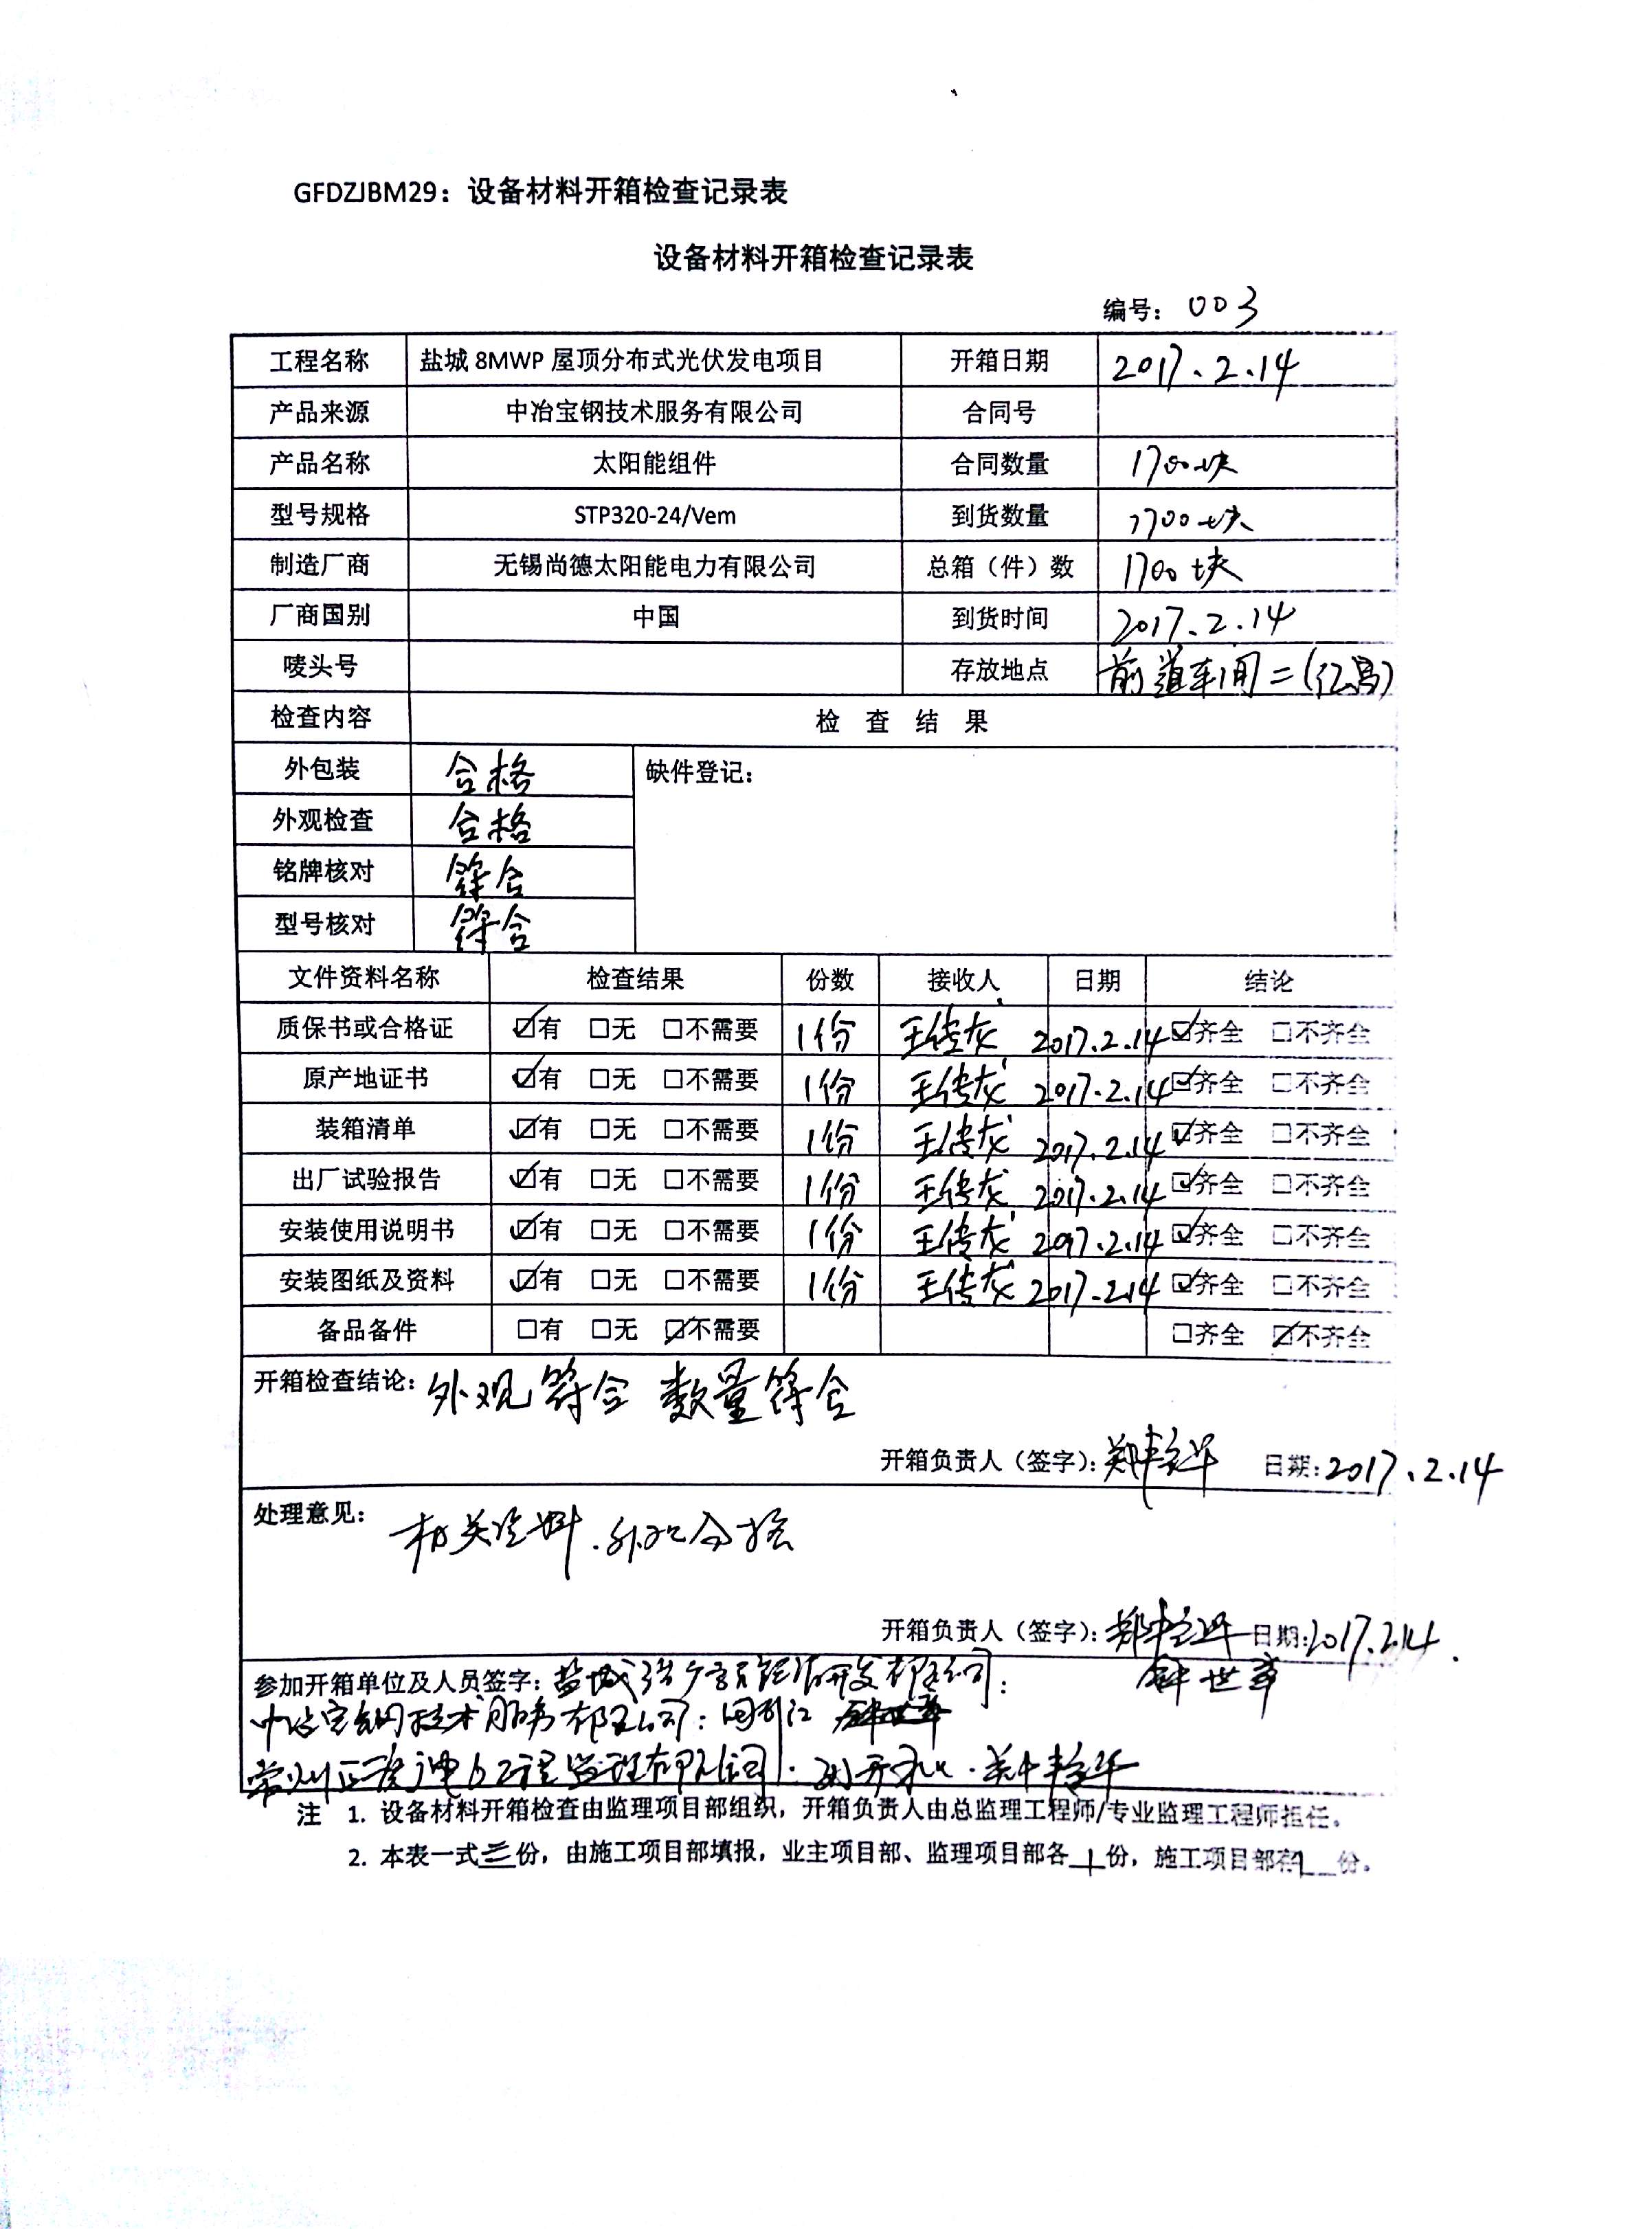 GFDZJBM29：设备材料开箱检查记录表
设备材料开箱检查记录表
编号： 003
工程名称 盐城 8MWP 屋顶分布式光伏发电项目 开箱日期 2017.2.14
产品来源 中冶宝钢技术服务有限公司 合同号
产品名称 太阳能组件 合同数量 1700块
型号规格 STP320-24/Vem 到货数量 1700块
制造厂商 无锡尚德太阳能电力有限公司 总箱（件）数 1700块
厂商国别 中国 到货时间 2017.2.14
唛头号 存放地点 前道车间二
检查内容 检 查 结 果
外包装 合格 缺件登记：
外观检查 合格
铭牌核对 符合
型号核对 符合
文件资料名称 检查结果 份数 接收人 日期 结论
质保书或合格证 ☑有 □无 □不需要 1份 王传龙 2017.2.14 ☑齐全 □不齐全
原产地证书 ☑有 □无 □不需要 1份 王传龙 2017.2.14 ☑齐全 □不齐全
装箱清单 ☑有 □无 □不需要 1份 王传龙 2017.2.14 ☑齐全 □不齐全
出厂试验报告 ☑有 □无 □不需要 1份 王传龙 2017.2.14 ☑齐全 □不齐全
安装使用说明书 ☑有 □无 □不需要 1份 王传龙 2017.2.14 ☑齐全 □不齐全
安装图纸及资料 ☑有 □无 □不需要 1份 王传龙 2017.2.14 ☑齐全 □不齐全
备品备件 □有 □无 ☑不需要 □齐全 ☑不齐全
开箱检查结论： 外观符合 数量符合
开箱负责人（签字）： 日期：2017.2.14
处理意见： 相关资料.外观合格
开箱负责人（签字）： 日期：2017.2.14.
参加开箱单位及人员签字： 钟世章
中冶宝钢技术服务有限公司：
注 1. 设备材料开箱检查由监理项目部组织，开箱负责人由总监理工程师/专业监理工程师担任。
2. 本表一式三份，由施工项目部填报，业主项目部、监理项目部各1份，施工项目部存1份。